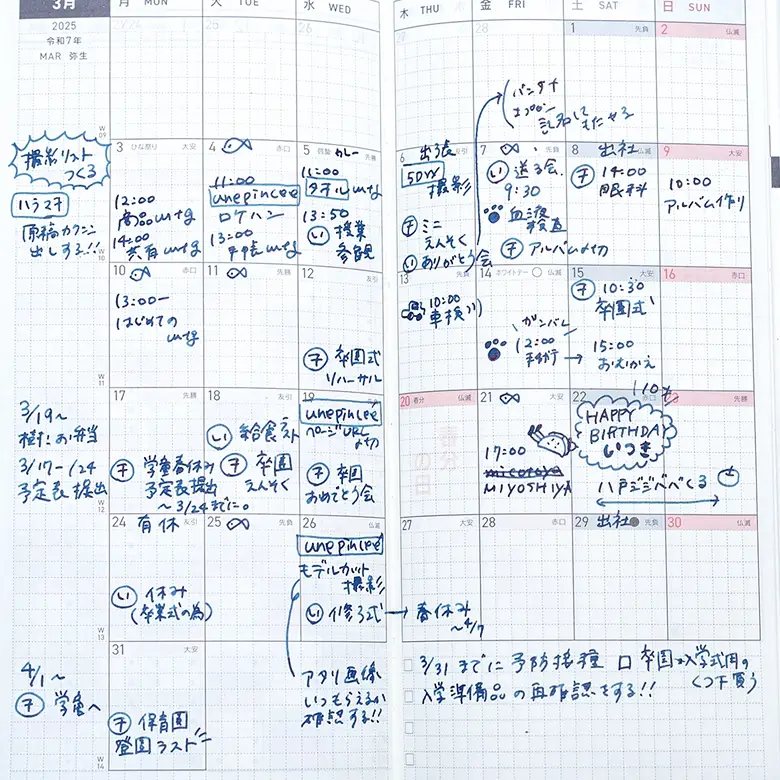 3月
2025
令和7年
MAR 弥生
月 MON
火 TUE
水 WED
木 THU
金 FRI
土 SAT
日 SUN
24
25
26
28
1 先負
2 仏滅
バンダナ
エプロン
記名して
もたせる
W 09
撮影リスト
つくる
ハラスナ
原稿カクニン
出しする!!
W 10
3 ひな祭り 大安
12:00
商品mtg
14:00
共有mtg
4 赤口
11:00
unepincee
ロケハン
13:00
手帳mtg
5 啓蟄 カレー 先勝
11:00
タオルmtg
13:50
い 授業
参観
6 出張 友引
50W
撮影
千 ミニ
えんそく
い ありがとう会
7 先負
い 送る会
9:30
血液
検査
千 アルバム〆切
8 出社 仏滅
千 14:00
眼科
9 大安
10:00
アルバム作り
10 赤口
13:00ー
はじめての
mtg
W 11
11 先勝
12 友引
千 卒園式
リハーサル
13 先負
10:00
車検
14 ホワイトデー 仏滅
ガンバレ
12:00
手術 →
15 大安
千 10:30
卒園式
15:00
おむかえ
16 赤口
3/19〜
樹お弁当
3/17-/24
予定表提出
W 12
17 先勝
千 学童春休み
予定表提出
〜3/24までに。
18 友引
い 給食ラスト
千 卒園
えんそく
19 先負
unepincee
ページURL
〆切
千 卒園
おめでとう会
20 春分 仏滅
春分
の日
21 大安
17:00
MIYOSHIYA
22 赤口
10才
HAPPY
BIRTHDAY
いつき
八戸ジジババくる
23 先勝
24 有休 友引
い 休み
(卒業式の為)
W 13
25 先負
26 仏滅
unepincee
モデルカット
撮影
い 修了式 → 春休み
〜4/7
アタリ画像
いつもらえるか
確認する!!
27 大安
28 赤口
29 出社 先負
30 仏滅
4/1〜
千 学童へ
W 14
31 大安
千 保育園
登園ラスト
3/31までに予防接種
入学準備品の再確認をする!!
卒園・入学式用の
くつ下買う